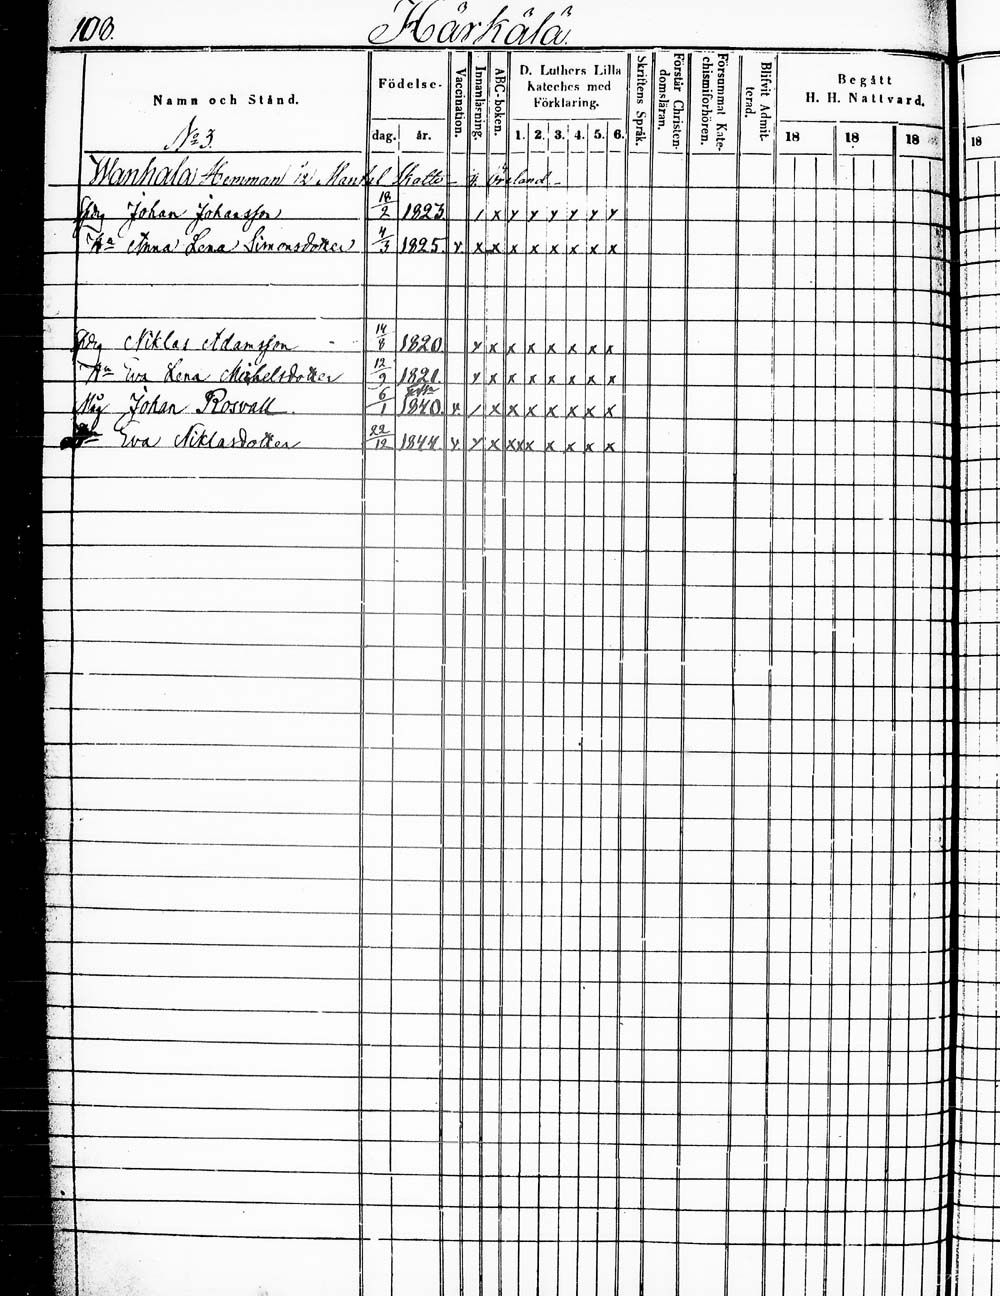 108.
Härkälä.
Namn och Stånd.
Födelse-
dag. år.
Vaccination.
Innanläsning.
ABC-boken.
D. Luthers Lilla Kateches med Förklaring.
1. 2. 3. 4. 5. 6.
Skriftens Språk.
Förstår Christendomsläran.
Försummat Katechismiförhören.
Blifvit Admitterad.
Begått H. H. Nattvard.
18 18 18 18
No 3.
Wanhala Hemman 1/2 Mantal Skatte
Johan Johansson 18/2 1823. / x y y y y y y
Hu Anna Lena Simonsdotter 4/3 1825. x x x x x x x x x
Niklas Adamsson 14/8 1820 y x x x x x x x
Hu Eva Lena Michelsdotter 12/9 1821. y x x x x x x x
Måg Johan Rosvall 6/1 1840. v. / x x x x x x x
Eva Niklasdotter 22/12 1844. v. y x xxx x x x x